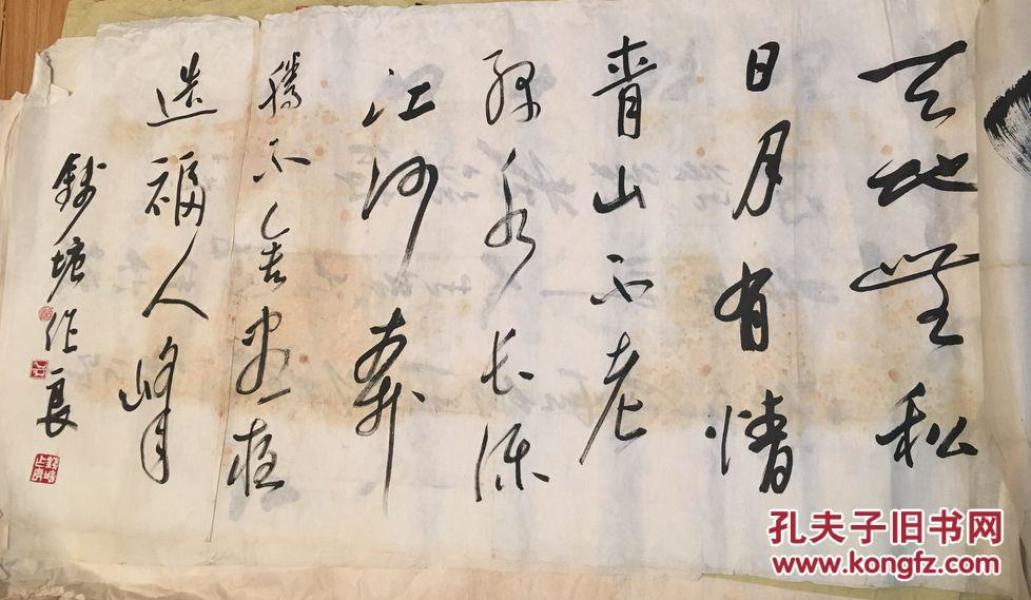 天地無私
日月有情
青山不老
绿水长流
江河奔
腾不舍昼夜
造福人
錢塘作良
孔夫子旧书网
www.kongfz.com